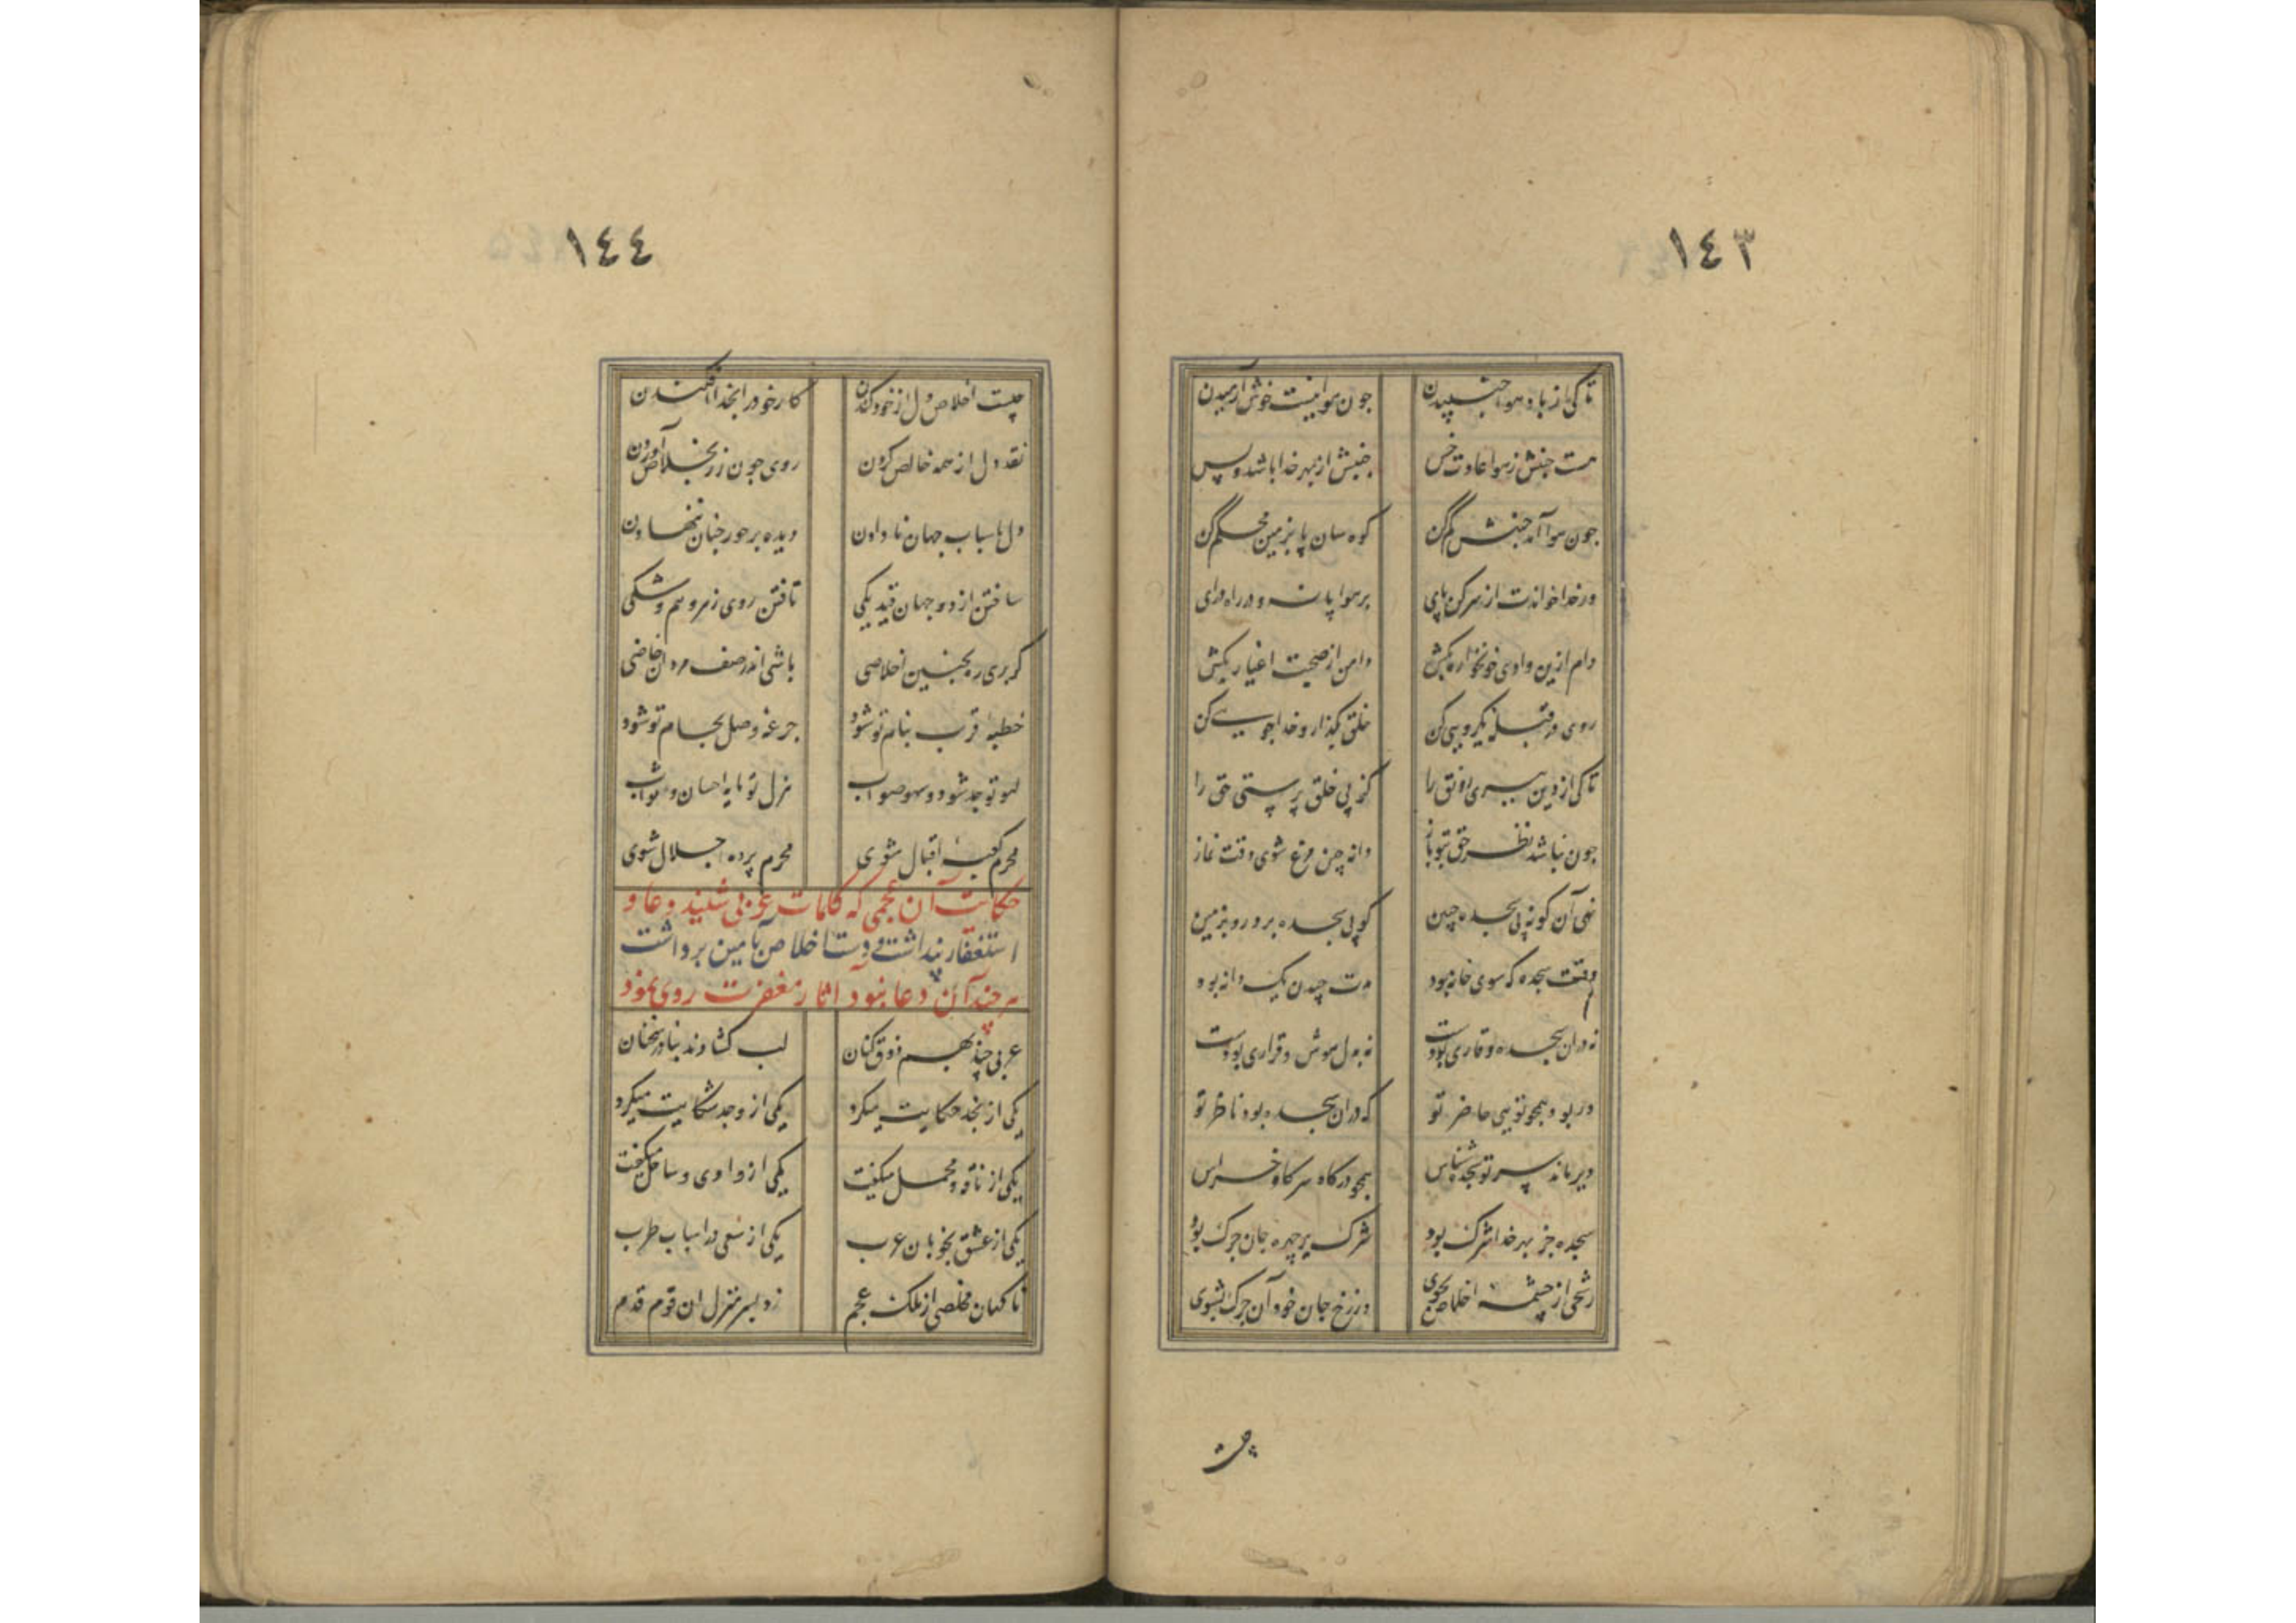 ١٤٣
تا کی از باد هوا جنبیدن چون هوا نیست خوش آرامیدن
هست جنبش ز هوا عادت خس جنبش از بهر خدا باشد و بس
جون هوا آید جنبش کم کن کوه سان پا بزمین محکم کن
ور خدا خواندت از سر کن پای بر هوا پا نه و در راه درای
دام ازین وادی خونخواره بکش دامن از صحبت اغیار بکش
روی در قبله یکرویی کن خلق بگذار و خدا جویی کن
تا کی از دین ببری رونق را کز پی خلق پرستی حق را
جون نباشد نظر حق بتو باز دانه چین مرغ شوی وقت نماز
نهی آن کونه پی سجده جبین کوپی سجده برو رو بزمین
وقت سجده که سوی خانه بود مدت چیدن یک دانه بود
نه در ان سجده وقاری بودت نه بدل هوش و قراری بودت
ور بود همچو تویی حاضر تو که در ان سجده بود ناظر تو
دیر ماند سر تو سجده شناس همچو در کاه سر کاو خراس
سجده جز بهر خدا شرک بود شرک بر چهره جان چرک بود
رشحی از چشمه اخلاص بجوی وز رخ جان خود آن چرک بشوی
چیست
١٤٤
چیست اخلاص دل از خود کندن کار خود را بخدا افکندن
نقد دل از همه خالص کردن روی چون زر بخلاص آوردن
دل باسباب جهان نادادن دیده بر حور جنان ننهادن
ساختن از دو جهان قید یکی تافتن روی ز هر وهم و شکی
کر بری ره بچنین اخلاصی باشی اندر صف مردان خاصی
خطبه قرب بنام تو شود جرعه وصل بجام تو شود
لهو تو جد شود و سهو صواب هزل تو مایه احسان و ثواب
محرم کعبه اقبال شوی محرم پرده اجلال شوی
حکایت آن عجمی که کلمات عربی شنید و دعا و
استغفار پنداشت و دست اخلاص بآمین برداشت
هر چند آن دعا نبود آثار مغفرت روی نمود
عربی چند بهم ذوق کنان لب کشادند بنادر سخنان
یکی از نجد حکایت میکرد یکی از وجد شکایت میکرد
یکی از ناقه و محمل میکفت یکی از وادی و ساحل میکفت
یکی از عشق بخوبان عرب یکی از سعی در اسباب طرب
ناکهان مخلصی از ملک عجم زد بسر منزل ان قوم قدم